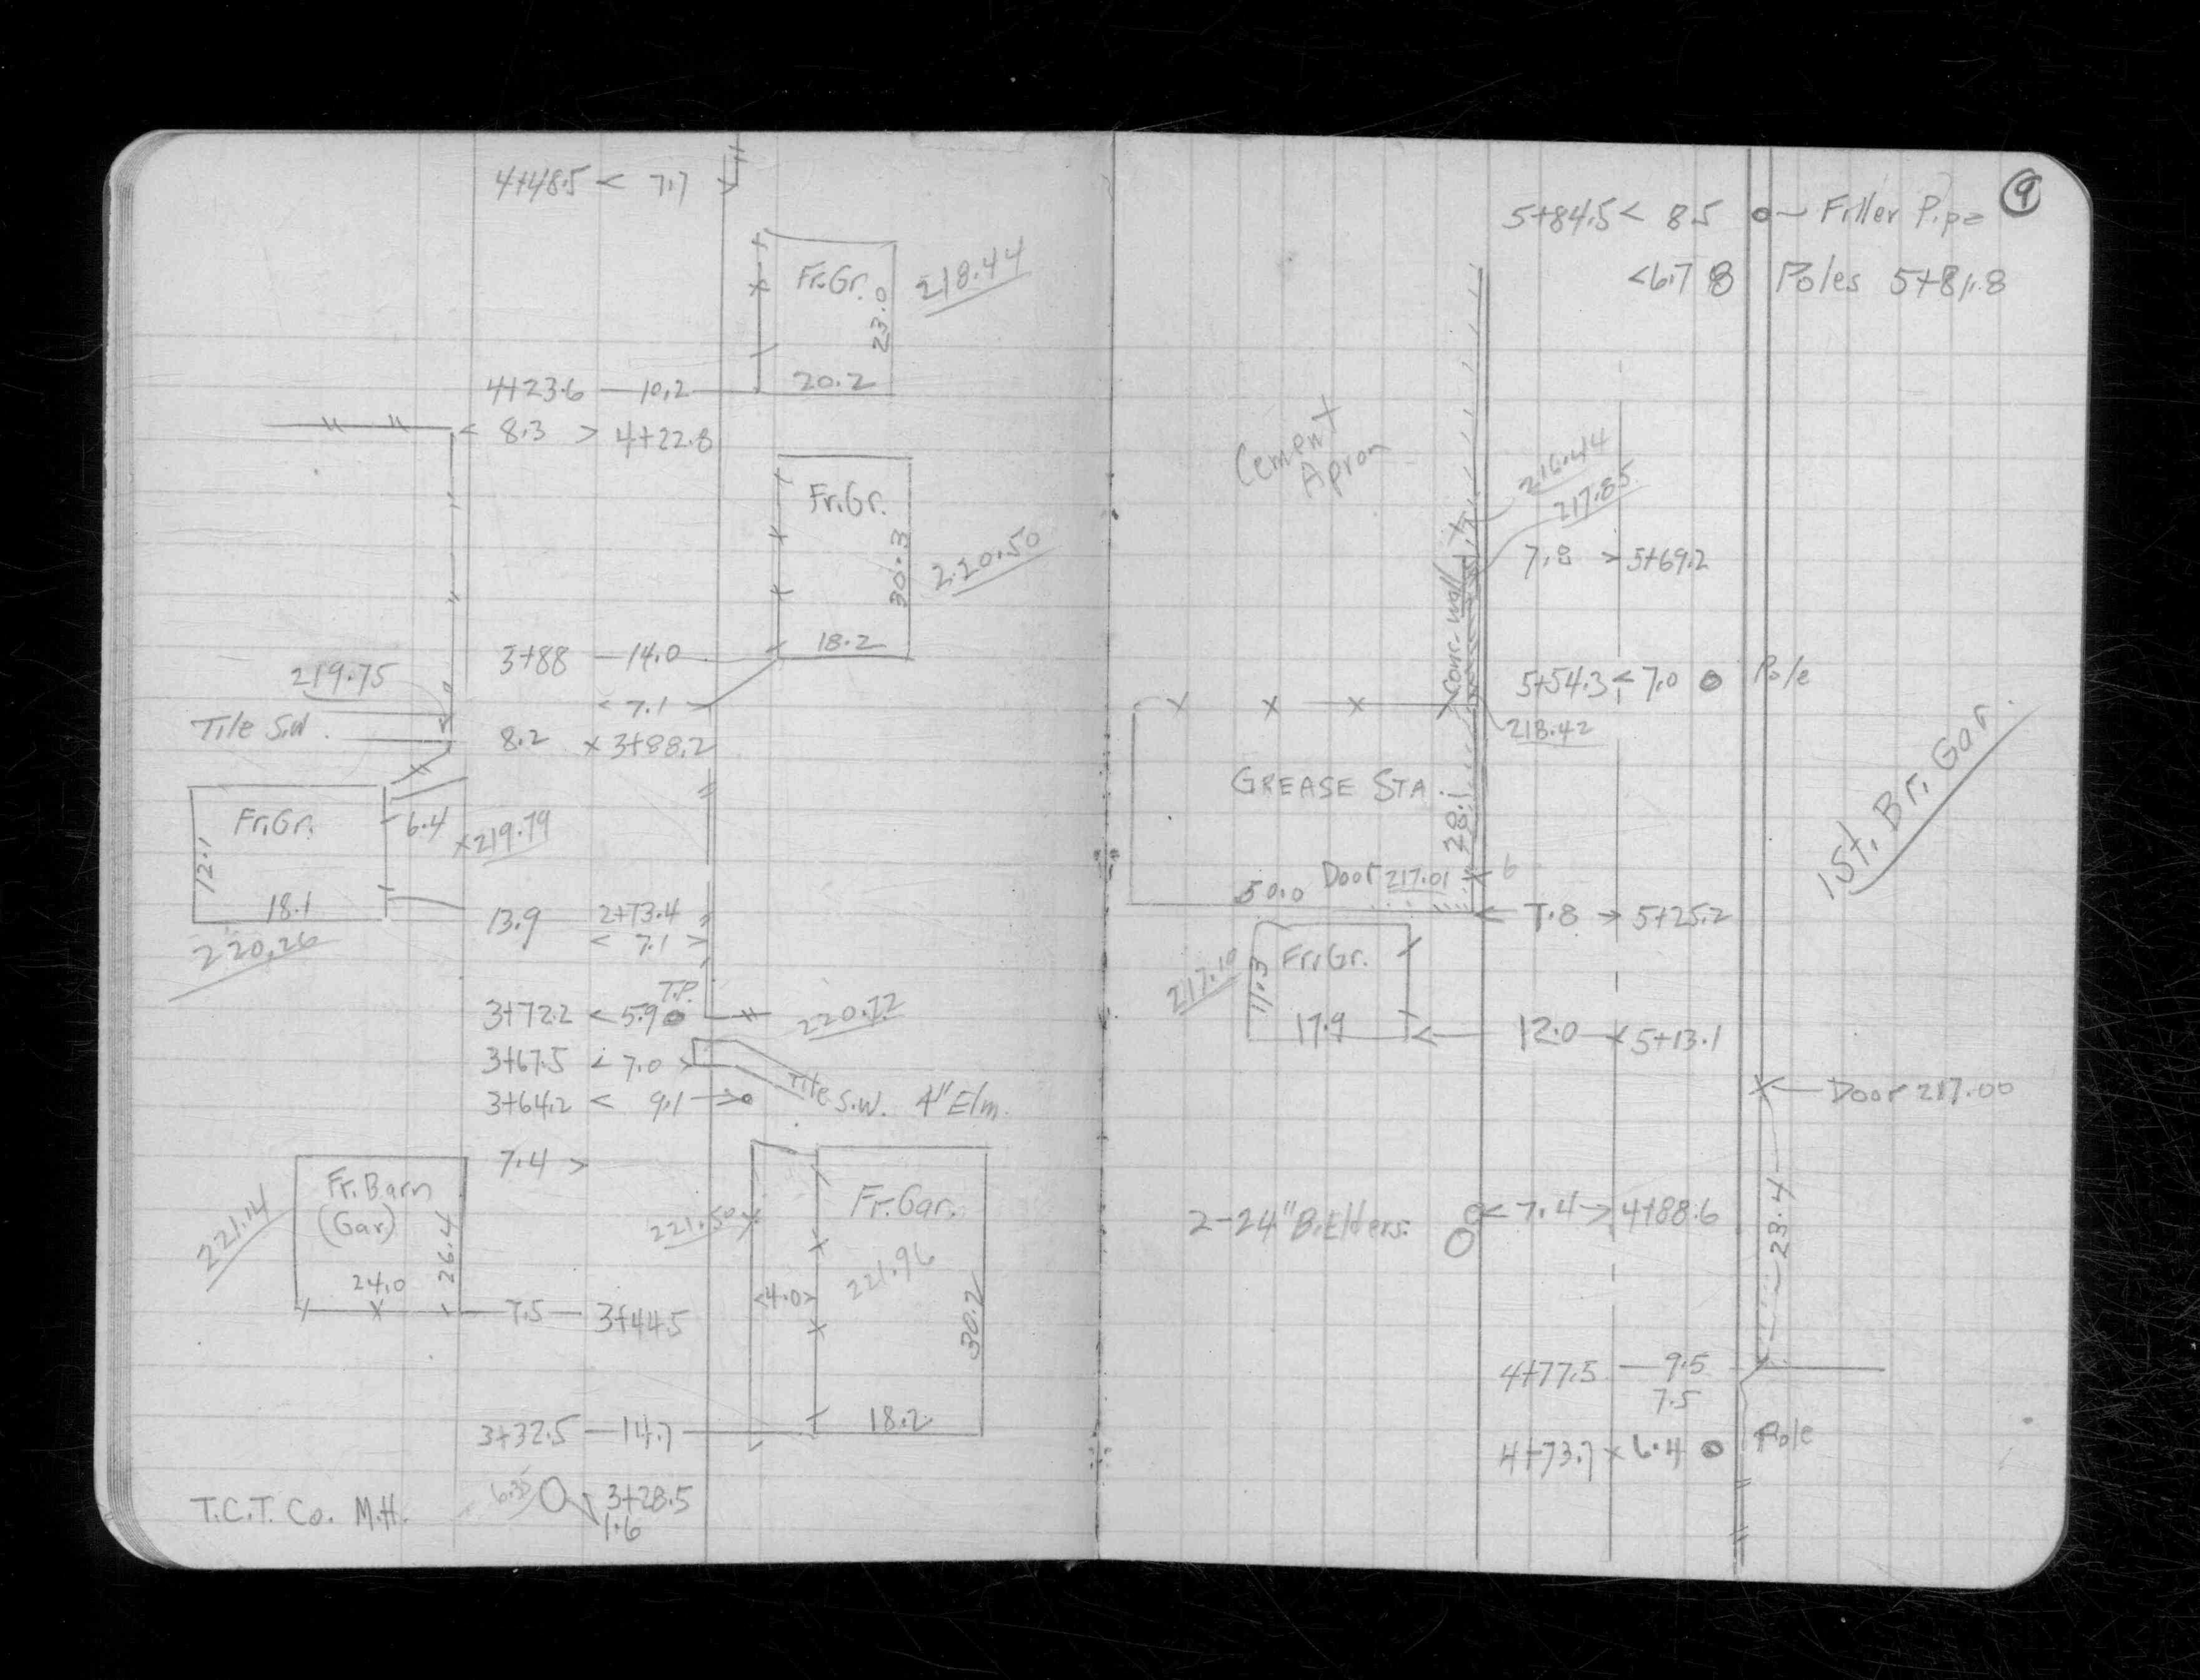 4+48.5 < 7.7
Fr.Gr.
218.44
23.0
20.2
4+23.6 — 10.2
< 8.3 > 4+22.8
Fr.Gr.
30.3
220.50
18.2
3+88 — 14.0
< 7.1 >
219.75
Tile S.W.
8.2 x 3+88.2
Fr.Gr.
6.4
x 219.79
12.1
18.1
220.26
13.9 2+73.4
< 7.1 >
T.P.
3+72.2 < 5.9
220.72
3+67.5 < 7.0 >
Tile S.W.
3+64.2 < 9.1 →
4" Elm.
7.4 >
Fr. Barn
(Gar)
221.14
26.4
24.0
221.50
Fr. Gar.
221.96
<4.0>
30.2
7.5 — 3+44.5
3+32.5 — 14.7
18.2
T.C.T. Co. M.H.
6.35
3+28.5
1.6
9
5+84.5 < 8.5 Filler Pipe
<6.7 8 Poles 5+81.8
Cement
Apron
216.44
217.85
7.8 > 5+69.2
Conc. Wall
5+54.3 < 7.0 Pole
218.42
GREASE STA.
28.1
1 St. Br. Gar.
Door 217.01
6
50.0
< 7.8 > 5+25.2
Fr.Gr.
217.19
11.3
17.9
12.0 x 5+13.1
Door 217.00
2-24" B.Elders.
< 7.4 > 4+88.6
23.4
4+77.5 — 9.5
7.5
4+73.7 x 6.4 Pole